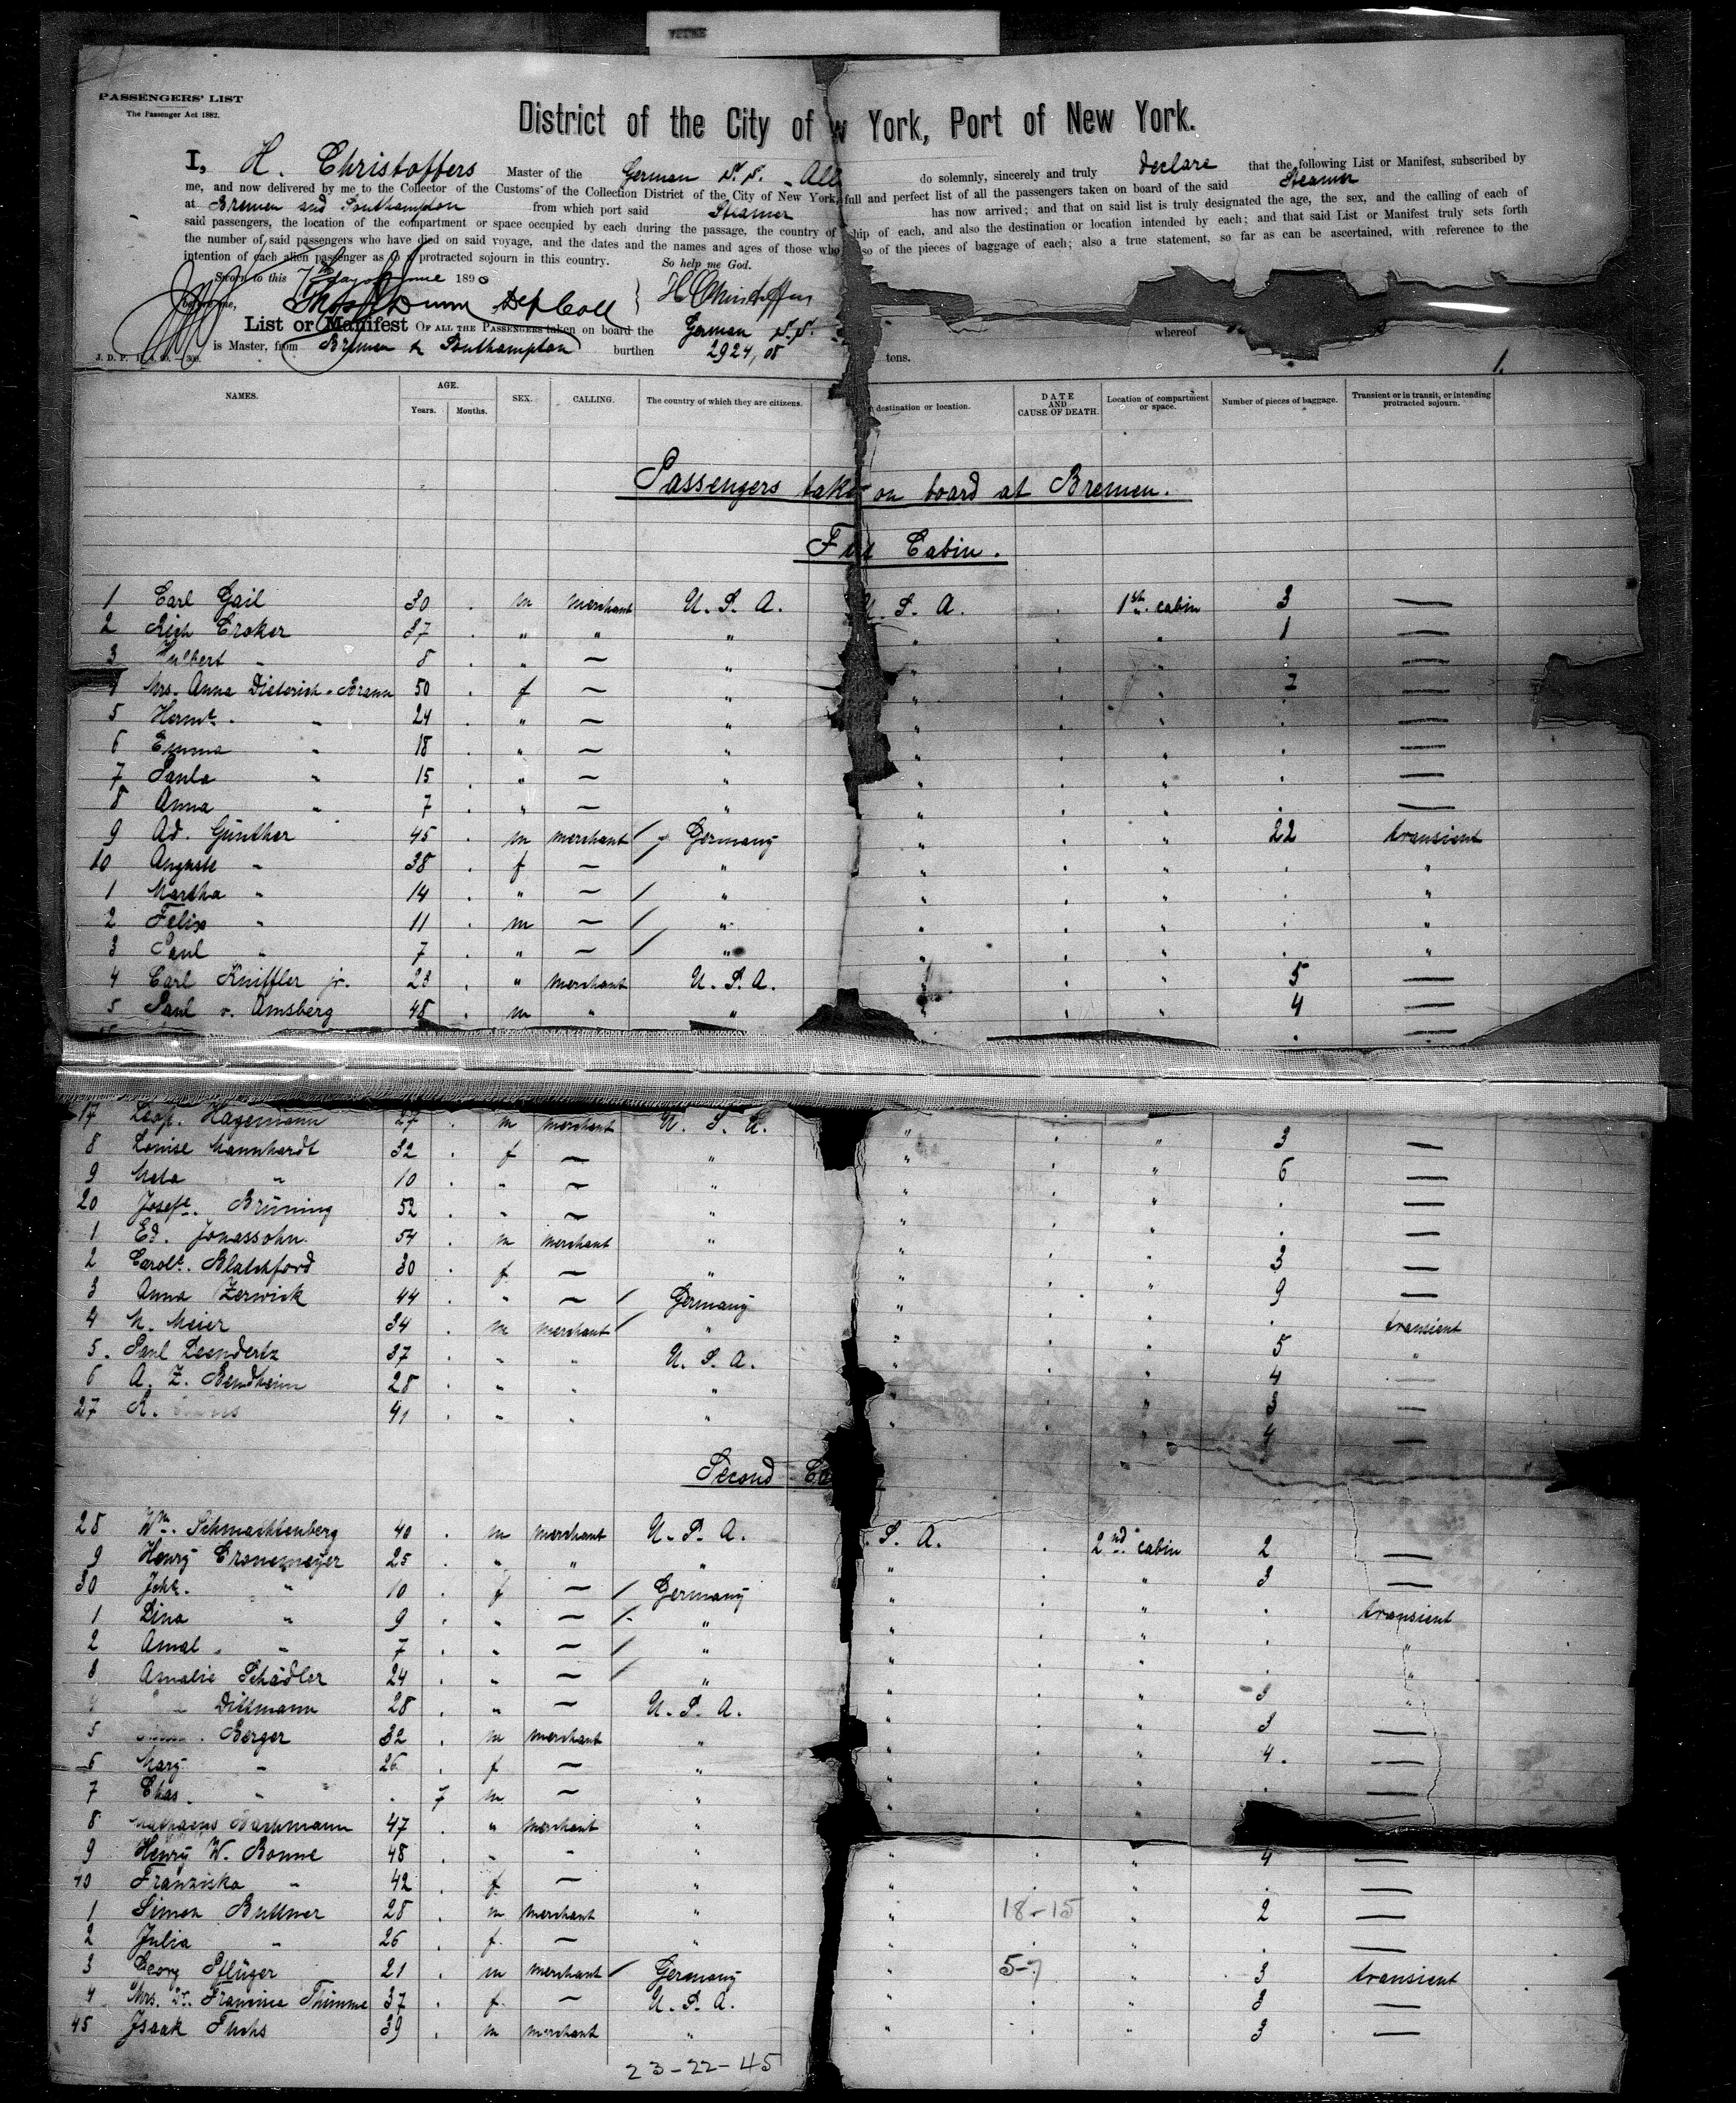 PASSENGERS' LIST
The Passenger Act 1882.
District of the City of w York, Port of New York.
I, H. Christoffers Master of the German S.S. All do solemnly, sincerely and truly declare that the following List or Manifest, subscribed by
me, and now delivered by me to the Collector of the Customs of the Collection District of the City of New York, full and perfect list of all the passengers taken on board of the said Steamer
at Bremen and Southampton from which port said Steamer has now arrived; and that on said list is truly designated the age, the sex, and the calling of each of
said passengers, the location of the compartment or space occupied by each during the passage, the country of ship of each, and also the destination or location intended by each; and that said List or Manifest truly sets forth
the number of said passengers who have died on said voyage, and the dates and the names and ages of those who so of the pieces of baggage of each; also a true statement, so far as can be ascertained, with reference to the
intention of each alien passenger as to a protracted sojourn in this country. So help me God.
Sworn to this 7th day of June 1890
before me, Dunn Dep Coll } H Christoffers
List or Manifest OF ALL THE PASSENGERS taken on board the German S.S. whereof
is Master, from Bremen & Southampton burthen 2924,08 tons.
1.
NAMES. AGE. Years. Months. SEX. CALLING. The country of which they are citizens. destination or location. DATE AND CAUSE OF DEATH. Location of compartment or space. Number of pieces of baggage. Transient or in transit, or intending protracted sojourn.
Passengers take on board at Bremen.
Fi Cabin.
1 Carl Gail 30 . m merchant U. S. A. U. S. A. . 1st cabin 3 —
2 Rich Croker 37 . " " " " . " 1 —
3 " 8 . " — " " . " . —
4 Mrs. Anna Dieterich-Braun 50 . f — " " . " 7 —
5 Herme. " 24 . " — " " . " . —
6 Emma " 18 . " — " " . " . —
7 Paula " 15 . " — " " . " . —
8 Anna " 7 . " — " " . " . —
9 Ad. Günther 45 . m merchant / Germany " . " 22 transient
10 Auguste " 38 . f — " " . " . "
1 Martha " 14 . " — / " " . " . "
2 Felix " 11 . m — / " " . " . "
3 Paul " 7 . " — / " " . " . "
4 Carl Kniffler jr. 23 . " merchant U. S. A. " . " 5 —
5 Paul v. Amsberg 48 . m " " " . " 4 —
17 Leop. Hagemann 27 . m merchant U. S. A. " . " 3 —
8 Louise Mannhardt 32 . f — " " . " 6 —
9 Meta " 10 . " — " " . " . —
20 Josefe. Brüning 52 . " — " " . " . —
1 Ed. Jonassohn 54 . m merchant " " . " 3 —
2 Carole. Blatchford 30 . f — " " . " 9 —
3 Anna Zerwick 44 . " — / Germany " . " . transient
4 M. Meier 34 . m merchant / " " . " 5 "
5. Paul Leendertz 37 . " " U. S. A. " . " 4 —
6 A. Z. Bendheim 28 . " " " " . " 3 —
27 R. 41 . " " " " . " 4 —
Second Ca
28 Wm. Schmachtenberg 40 . m merchant U. S. A. . S. A. . 2nd cabin 2 —
9 Henry Cronemeyer 25 . " " " " . " 3 —
30 Johe. " 10 . f — / Germany " . " . transient
1 Lina " 9 . " — / " " . " . "
2 Amal. " 7 . " — / " " . " . "
3 Amalie Schädler 24 . " — / " " . " 3 "
" Dittmann 28 . " — U. S. A. " . " 3 —
5 Berger 32 . m merchant " " . " 4. —
6 Mary " 26 . f — " " . " . —
7 Chas. " . 7 m — " " . —
8 Bachmann 47 . " merchant "
9 Henry W. Bonne 48 . " " " " . " 4 —
40 Franziska " 42 . f — " " . " . —
1 Simon Buttner 28 . m merchant " " 18-15 " 2 —
2 Julia " 26 . f. — " " . " . —
3 Georg Pflüger 21 . m merchant / Germany " 5-7 " 3 transient
4 Mrs. Dr. Francisca Thimme 37 . f. — U. S. A. " . " 3 —
45 Isaak Fuchs 39 . m merchant " " . " 3 —
23-22-45